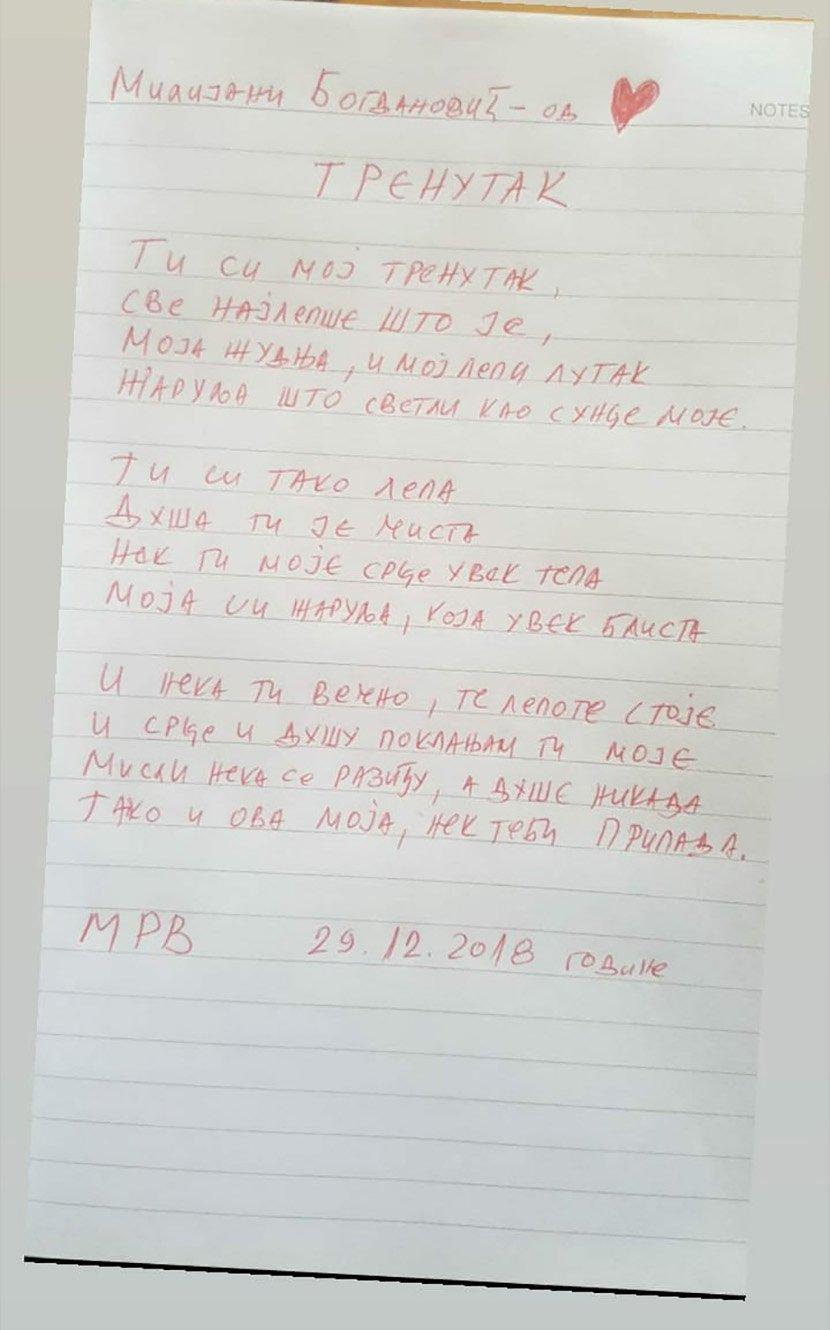 Милијани Богдановић - од
NOTES
ТРЕНУТАК
Ти си мој тренутак,
све најлепше што је,
Моја жудња, и мој лепи лутак
Жаруља што светли као сунце моје.
Ти си тако лепа
Душа ти је чиста
Нек ти моје срце увек тепа
Моја си жаруља, која увек блиста
И нека ти вечно, те лепоте стоје
И срце и душу поклањам ти моје
Мисли нека се разиђу, а душе никада
Тако и ова моја, нек теби припада.
МРВ 29.12.2018 године